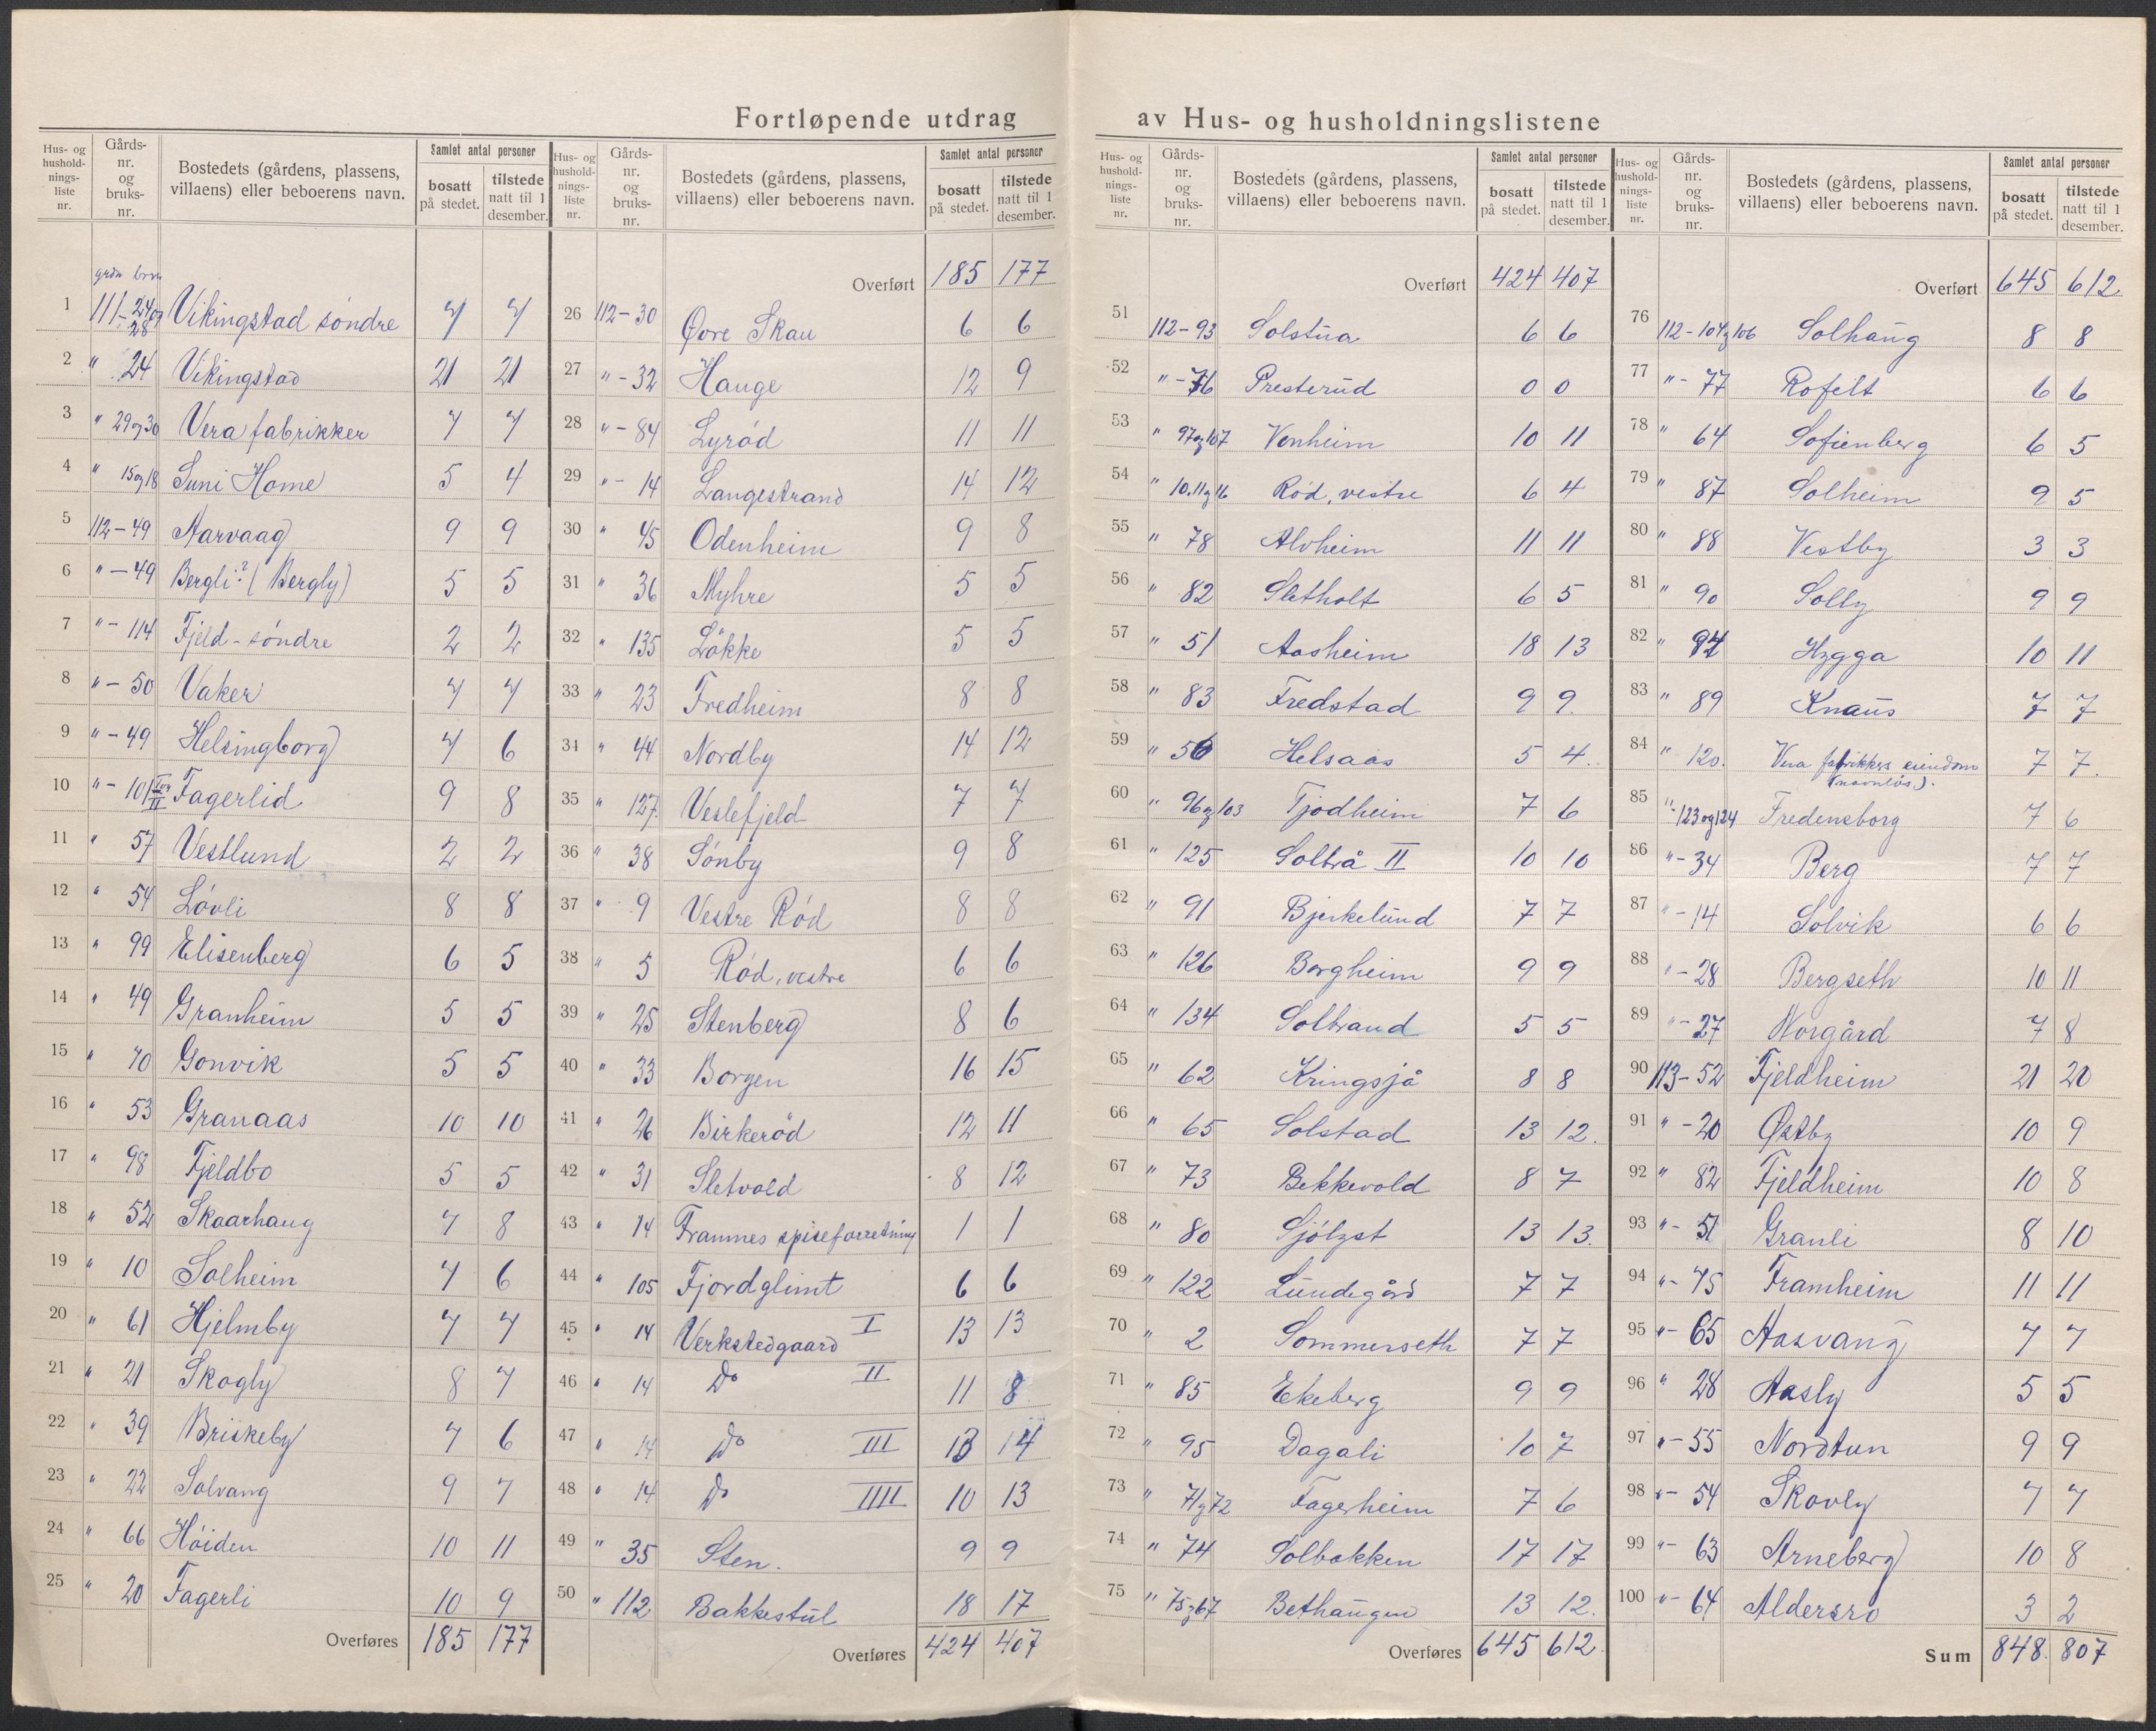 Fortløpende utdrag av Hus- og husholdningslistene
Hus- og husholdningsliste nr. | Gårdsnr. og bruksnr. | Bostedets (gårdens, plassens, villaens) eller beboerens navn. | Samlet antal personer: bosatt på stedet. | tilstede natt til 1 desember.
grdn brn
1 111-24 og 28 Vikingstad søndre 7 7
2 " 24 Vikingstad 21 21
3 " 29 og 30 Vera fabrikker 7 7
4 " 15 og 18 Suni Home 5 4
5 112-49 Aarvaag 9 9
6 "-49 Bergli? (Bergly) 5 5
7 "-114 Fjeld-søndre 2 2
8 "-50 Vaker 7 7
9 "-49 Helsingborg 7 6
10 "-101 I og II Fagerlid 9 8
11 " 57 Vestlund 2 2
12 " 54 Løvli 8 8
13 " 99 Elisenberg 6 5
14 " 49 Granheim 5 5
15 " 70 Gonvik 5 5
16 " 53 Granaas 10 10
17 " 98 Fjeldbo 5 5
18 " 52 Skaarhaug 7 8
19 " 10 Solheim 7 6
20 " 61 Hjelmby 7 7
21 " 21 Skogly 8 7
22 " 39 Briskeby 7 6
23 " 22 Solvang 9 7
24 " 66 Høiden 10 11
25 " 20 Fagerli 10 9
Overføres 185 177
Hus- og husholdningsliste nr. | Gårdsnr. og bruksnr. | Bostedets (gårdens, plassens, villaens) eller beboerens navn. | Samlet antal personer: bosatt på stedet. | tilstede natt til 1 desember.
Overført 185 177
26 112-30 Øvre Skau 6 6
27 "-32 Hauge 12 9
28 "-84 Lyrød 11 11
29 "-14 Langestrand 14 12
30 " 45 Odenheim 9 8
31 " 36 Myhre 5 5
32 " 135 Løkke 5 5
33 " 23 Fredheim 8 8
34 " 44 Nordby 14 12
35 " 127. Veslefjeld 7 7
36 " 38 Sønby 9 8
37 " 9 Vestre Rød 8 8
38 " 5 Rød, vestre 6 6
39 " 25 Stenberg 8 6
40 " 33 Borgen 16 15
41 " 26 Birkerød 12 11
42 " 31 Sletvold 8 12
43 " 14 Framnes spiseforretning 1 1
44 " 105 Fjordglimt 6 6
45 " 14 Verkstedgaard I 13 13
46 " 14 Do II 11 8
47 " 14 Do III 13 14
48 " 14 Do IIII 10 13
49 " 35 Sten. 9 9
50 " 112 Bakkestul 18 17
Overføres 424 407
Hus- og husholdningsliste nr. | Gårdsnr. og bruksnr. | Bostedets (gårdens, plassens, villaens) eller beboerens navn. | Samlet antal personer: bosatt på stedet. | tilstede natt til 1 desember.
Overført 424 407
51 112-93 Solstua 6 6
52 "-76 Presterud 0 0
53 " 97 og 107 Vonheim 10 11
54 " 10.11 og 16 Rød, vestre 6 4
55 " 78 Alvheim 11 11
56 " 82 Sletholt 6 5
57 " 51 Aasheim 18 13
58 " 83 Fredstad 9 9
59 " 56 Helsaas 5 4.
60 " 96 og 103 Tjodheim 7 6
61 " 125 Soltrå II 10 10
62 " 91 Bjerkelund 7 7
63 " 126 Borgheim 9 9
64 " 134 Soltrand 5 5
65 " 62 Kringsjå 8 8
66 " 65 Solstad 13 12.
67 " 73 Bekkevold 8 7
68 " 80 Sjølyst 13 13.
69 " 122 Lundegård 7 7
70 " 2 Sommerseth 7 7
71 " 85 Ekeberg 9 9
72 " 95 Dagali 10 7
73 " 71 og 72 Fagerheim 7 6
74 " 74 Solbakken 17 17
75 " 75 og 67 Bethaugen 13 12.
Overføres 645 612.
Hus- og husholdningsliste nr. | Gårdsnr. og bruksnr. | Bostedets (gårdens, plassens, villaens) eller beboerens navn. | Samlet antal personer: bosatt på stedet. | tilstede natt til 1 desember.
Overført 645 612
76 112-104 og 106 Solhaug 8 8
77 "-77 Rofelt 6 6
78 " 64 Sofienberg 6 5
79 " 87 Solheim 9 5
80 " 88 Vestby 3 3
81 " 90 Solly 9 9
82 " 94 Hygga 10 11
83 " 89 Knaus 7 7
84 " 120. Vera fabrikkers eiendom (navnløs). 7 7.
85 "-123 og 124 Fredensborg 7 6
86 "-34 Berg 7 7
87 "-14 Solvik 6 6
88 "-28 Bergseth 10 11
89 "-27 Norgård 7 8
90 113-52 Fjeldheim 21 20
91 "-20 Østby 10 9
92 " 82 Fjeldheim 10 8
93 "-51 Granli 8 10
94 "-75 Framheim 11 11
95 "-65 Aasvang 7 7
96 " 28 Aasly 5 5
97 "-55 Nordtun 9 9
98 "-54 Skovly 7 7
99 "-63 Arneberg 10 8
100 "-64 Aldersro 3 2
Sum 848. 807